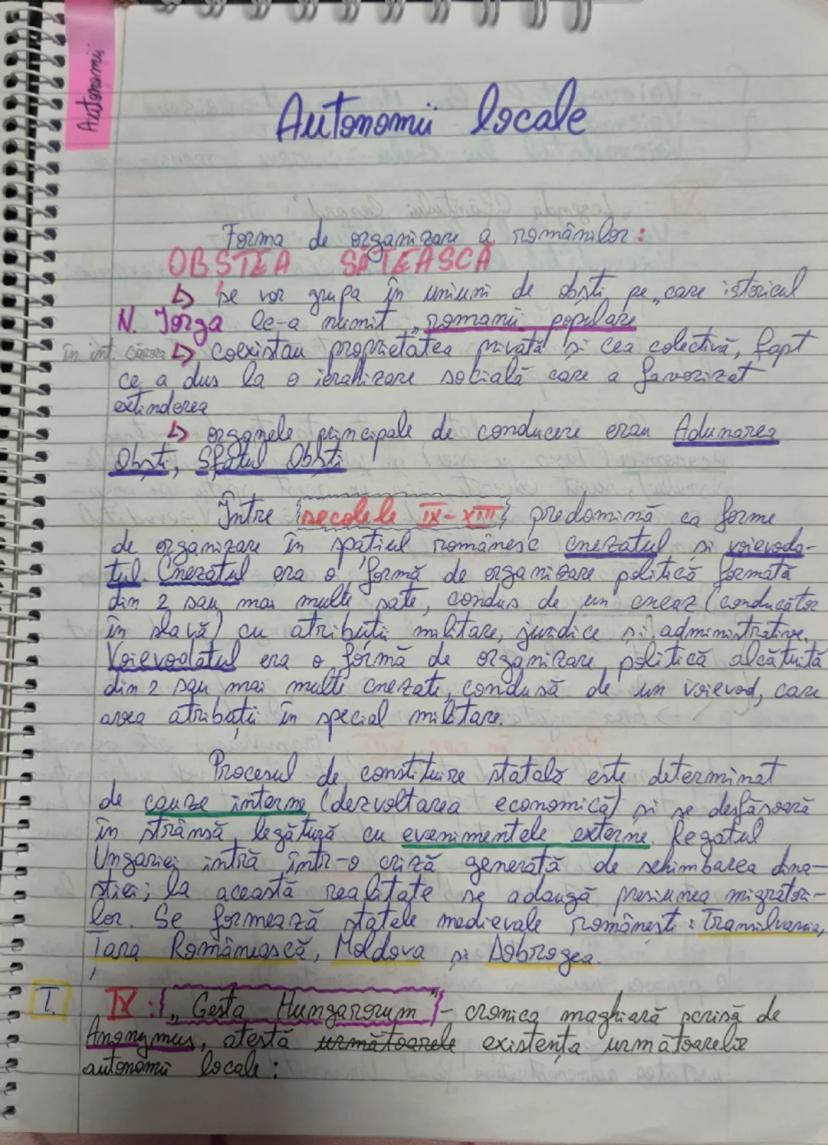 Autonomii
Autonomii locale
Forma de organizare a românilor:
OBSTEA SĂTEASCĂ
↳ se vor grupa în uniuni de obști pe care istoricul
N. Iorga le-a numit „romanii populare
în int. cărora ↳ coexistau proprietatea privată și cea colectivă, fapt
ce a dus la o ierahizare socială care a favorizat
extinderea
↳ organele principale de conducere erau Adunarea
Obști, Sfatul Obști
Între secolele IX-XIII predomină ca forme
de organizare în spațiul românesc cnezatul și voievoda-
tul. Cnezatul era o formă de organizare politică formată
din 2 sau mai multe sate, condus de un cneaz (conducător
în slavă) cu atribuții militare, juridice și administrative.
Voievodatul era o formă de organizare politică alcătuită
din 2 sau mai multi cnezate, condusă de un voievod, care
avea atribuții în special militare.
Procesul de constituire statală este determinat
de cauze interne (dezvoltarea economică) și se desfășoară
în strânsă legătură cu evenimentele externe. Regatul
Ungariei intră într-o criză generată de schimbarea dina-
stiei; la această realitate se adaugă presiunea migratori-
lor. Se formează statele medievale românești: Transilvania,
Țara Românească, Moldova și Dobrogea.
I. IX: „Gesta Hungarorum" - cronica maghiară scrisă de
Anonymus, atestă următoarele existența următoarelor
autonomii locale: